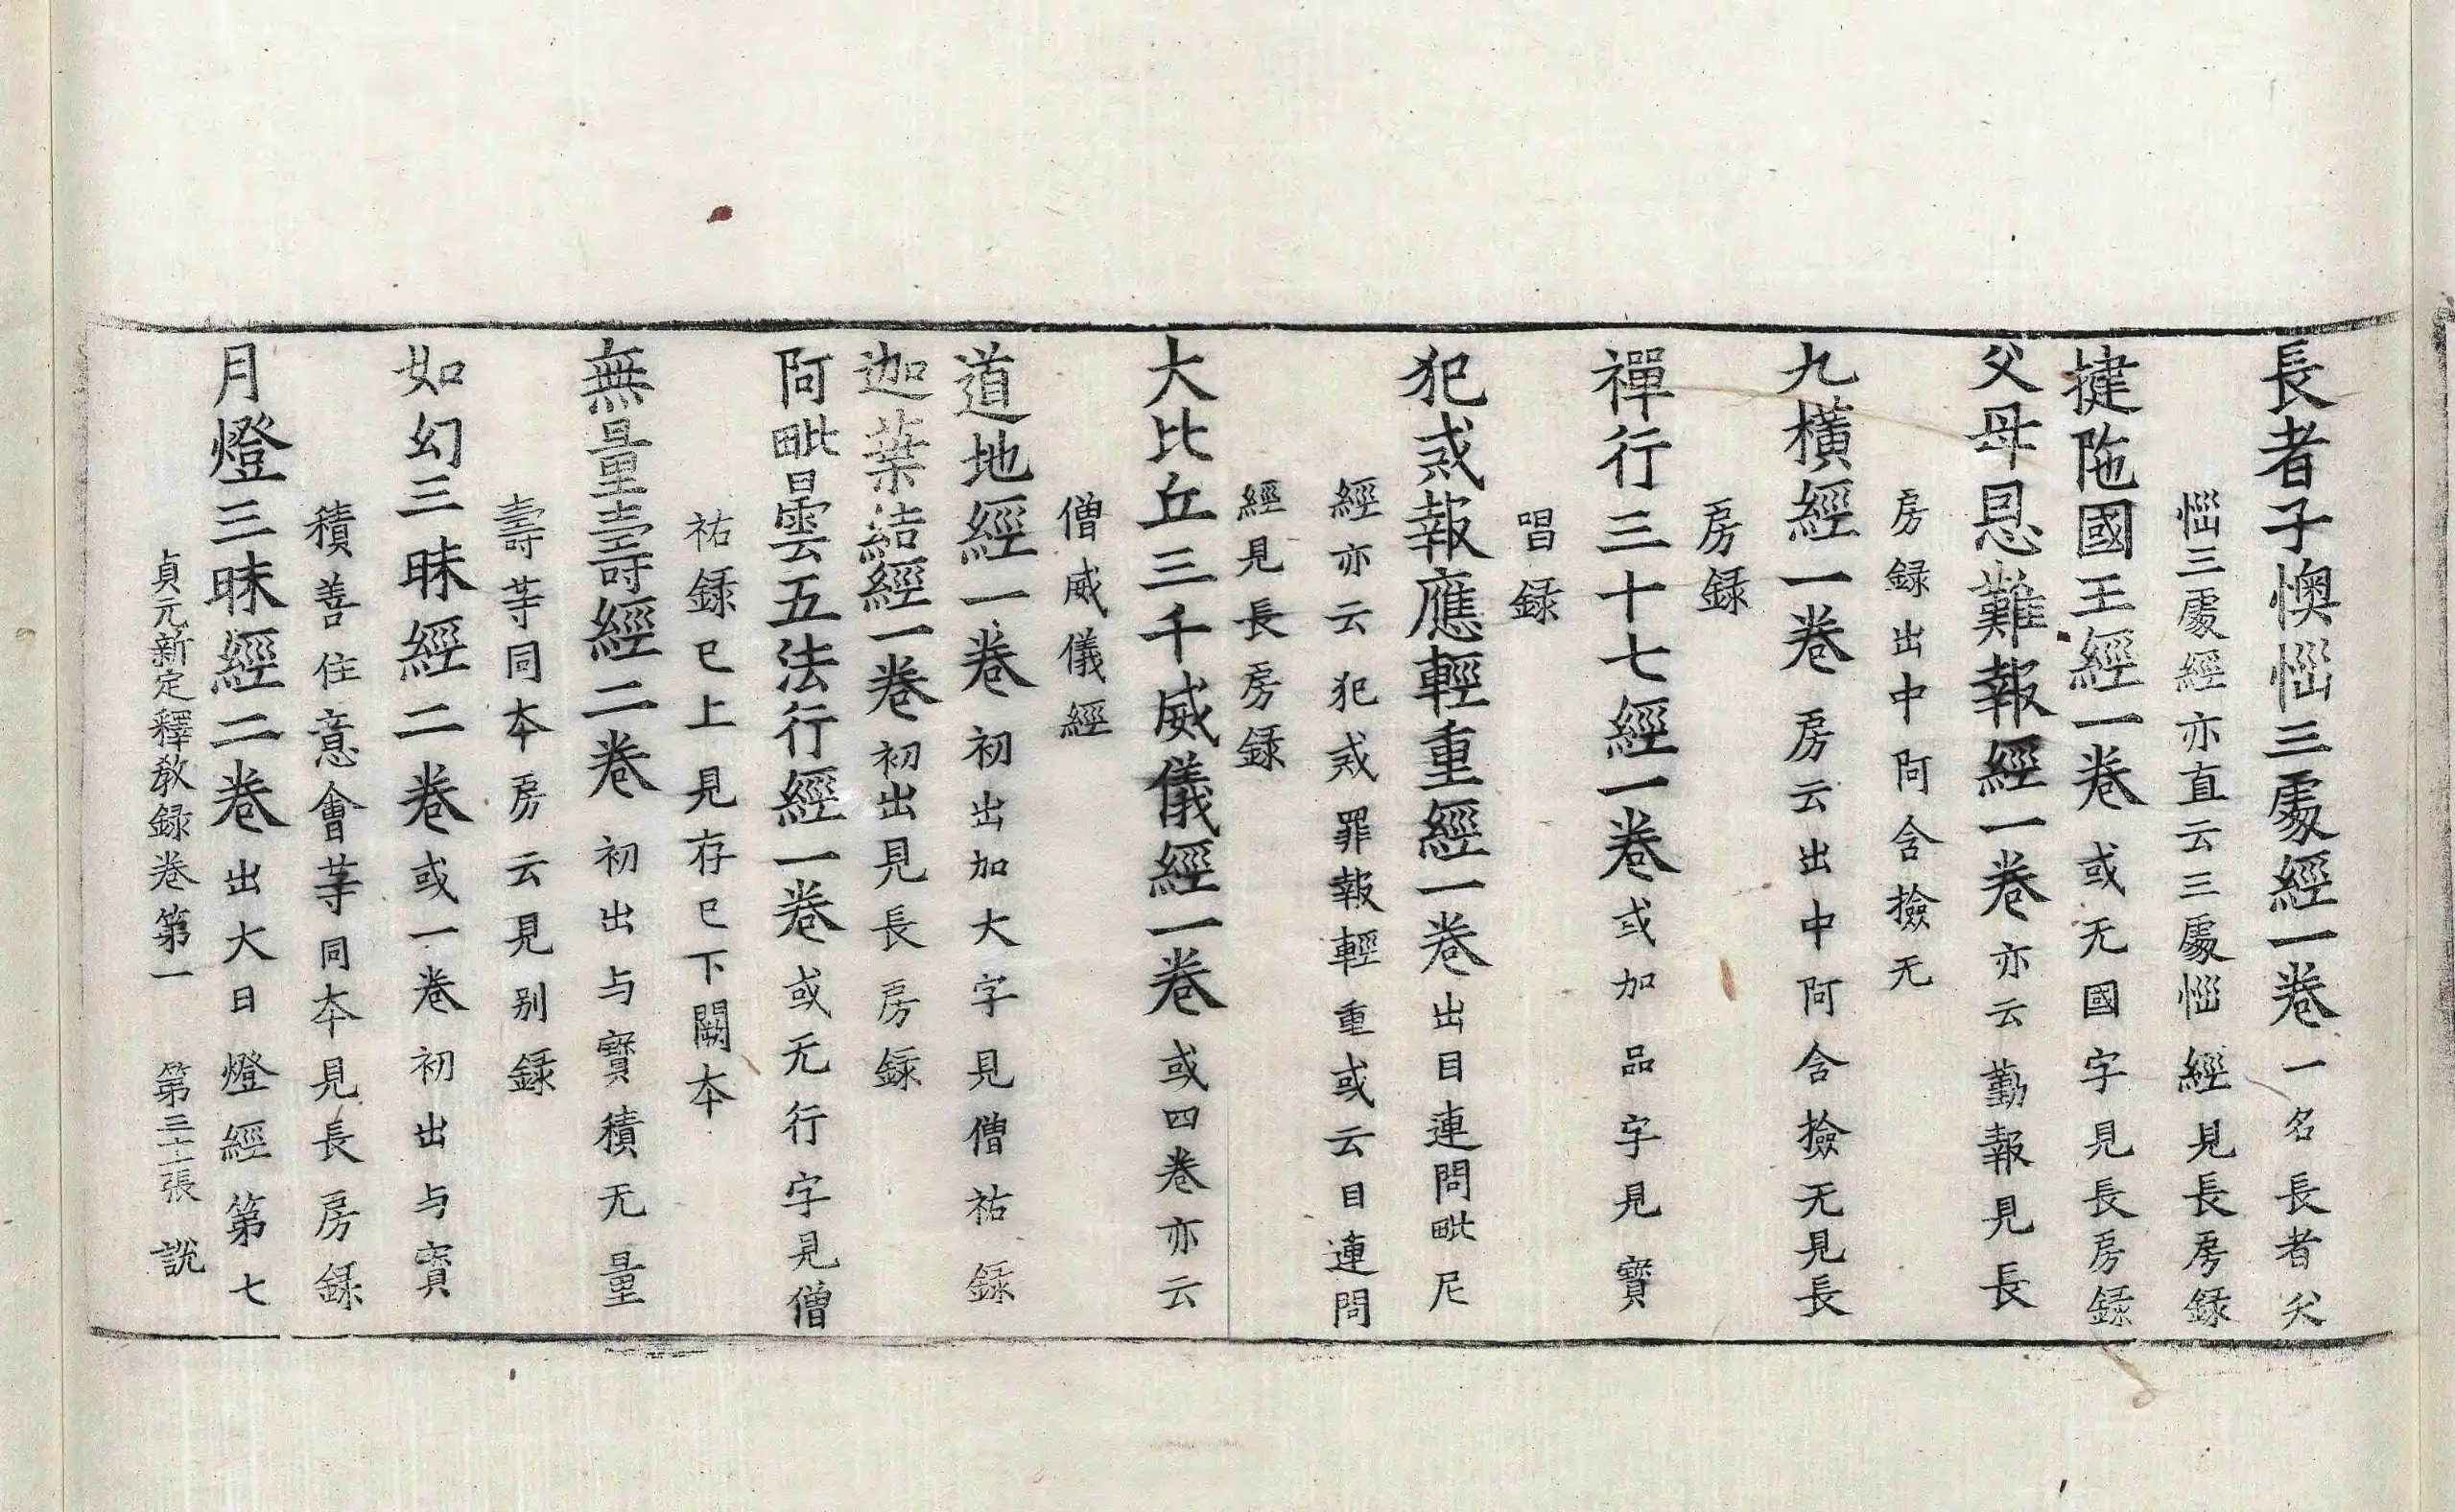 長者子懊惱三處經一卷一名長者夭
惱三處經亦直云三處惱經見長房録
揵陁國王經一卷或无國字見長房録
父母恩難報經一卷亦云勤報見長
房録出中阿含撿无
九橫經一卷房云出中阿含撿无見長
房録
禪行三十七經一卷或加品字見寶
唱録
犯戒報應輕重經一卷出目連問毗尼
經亦云犯戒罪報輕重或云目連問
經見長房録
大比丘三千威儀經一卷或四卷亦云
僧威儀經
道地經一卷初出加大字見僧祐録
迦葉結經一卷初出見長房録
阿毗曇五法行經一卷或无行字見僧
祐録已上見存已下闕本
無量壽經二卷初出与寶積无量
壽等同本房云見别録
如幻三昧經二卷或一卷初出与寶
積善住意會等同本見長房録
月燈三昧經二卷出大日燈經第七
貞元新定釋教録卷第一 第三十張 說